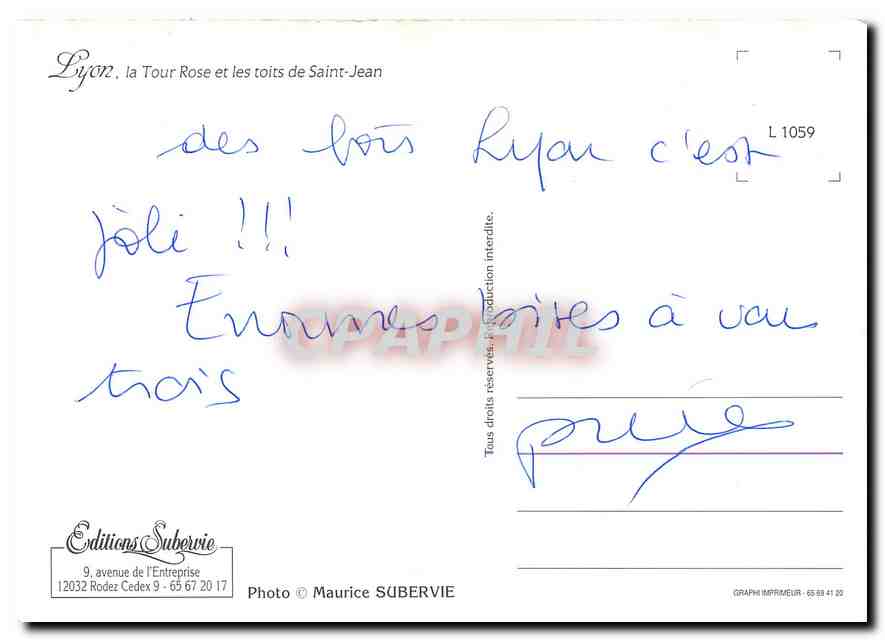 Lyon, la Tour Rose et les toits de Saint-Jean
L 1059
des fois Lyon c'est
joli !!!
Enormes bises à vous
trois
Tous droits réservés. Reproduction interdite.
CPAPHIL
Editions Subervie
9, avenue de l'Entreprise
12032 Rodez Cedex 9 - 65 67 20 17
Photo © Maurice SUBERVIE
GRAPHI IMPRIMEUR - 65 69 41 20